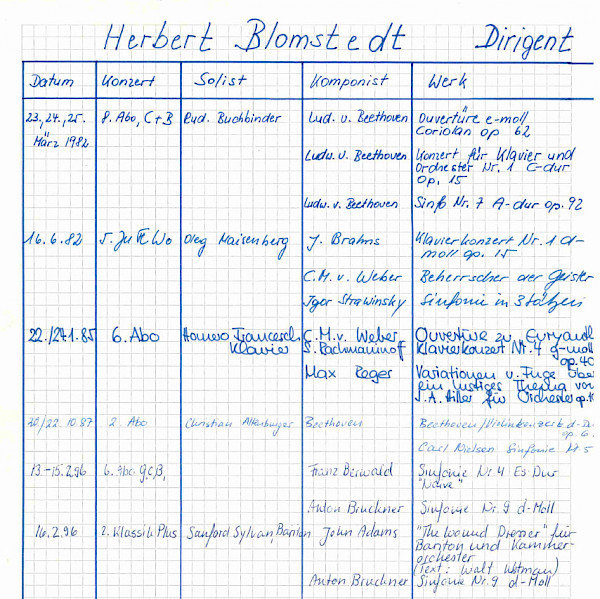 Herbert Blomstedt Dirigent
Datum Konzert Solist Komponist Werk
23., 24., 25. 8. Abo, C+B Rud. Buchbinder Lud. v. Beethoven Ouvertüre e-moll
März 1982 Coriolan op 62
Ludw. v. Beethoven Konzert für Klavier und
Orchester Nr. 1 C-dur
Op. 15
Ludw. v. Beethoven Sinfo Nr. 7 A-dur op. 92
16.6.82 5. Wo Oleg Maisenberg J. Brahms Klavierkonzert Nr. 1 d-
moll op. 15
C.M. v. Weber Beherrscher der Geister
Igor Strawinsky Sinfonie in 3 Sätzen
22./24.1.85 6. Abo Homero Francesch C.M.v. Weber Ouvertüre zu Euryanth
Klavier S. Rachmaninof Klavierkonzert Nr. 4 g-moll
op. 40
Max Reger Variationen v. Fuge über
ein lustiges Thema von
J.A. Hiller für Orchester op. 1
20/22.10.87 2. Abo Christian Altenburger Beethoven Beethoven/Violinkonzert d-D
op. 6
Carl Nielsen Sinfonie Nr 5
13.-15.2.96 6. Abo g.c.B, Franz Berwald Sinfonie Nr. 4 Es-Dur
"Naive"
Anton Bruckner Sinfonie Nr. 9 d-Moll
16.2.96 2. Klassik Plus Sanford Sylvan, Bariton John Adams "The Wound Dresser" für
Bariton und Kammer-
orchester
(Text: Walt Witman)
Anton Bruckner Sinfonie Nr. 9 d-Moll